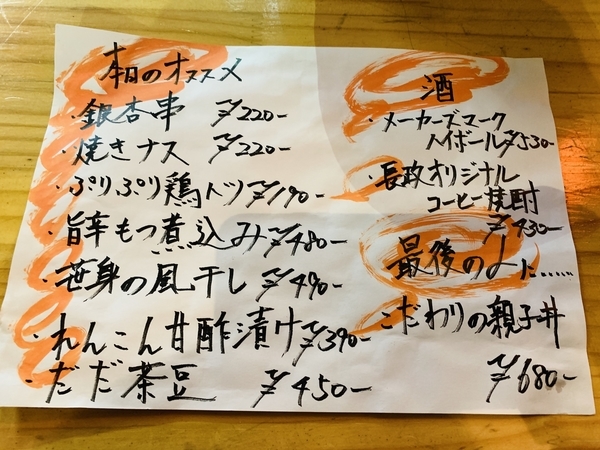 本日のオススメ
・銀杏串 ¥220-
・焼きナス ¥220-
・ぷりぷり鶏ハツ ¥190-
・旨辛もつ煮込み ¥480-
・笹身の風干し ¥490-
・れんこん甘酢漬け ¥390-
・だだ茶豆 ¥450-
酒
・メーカーズマーク
ハイボール ¥530-
・長政オリジナル
コーヒー焼酎
¥430-
最後の〆に……
こだわりの親子丼
¥680-